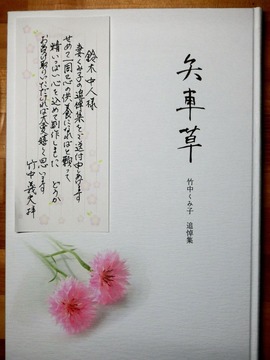 鈴木中人様
妻くみ子の追悼集をご送付申しあげます
せめて一周忌の供養になればと願って、
精いっぱい心を込めて制作しました どうか
お受け取りいただければ大変嬉しく思います
竹中義夫拝
矢車草
竹中くみ子 追悼集